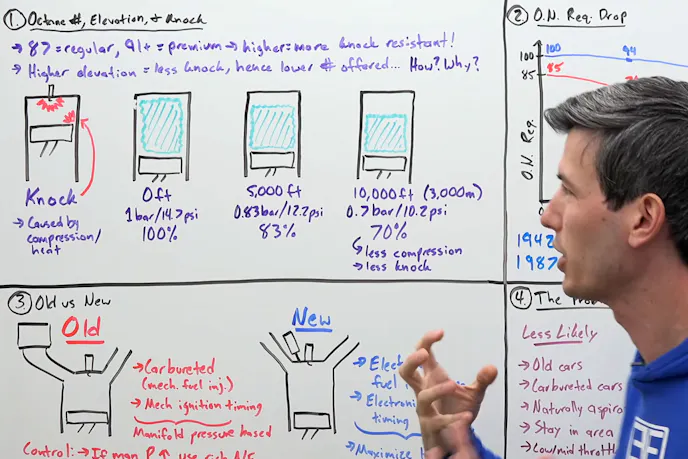 1. Octane #, Elevation, & Knock
→ 87 = regular, 91+ = premium → higher = more knock resistant!
→ Higher elevation = less knock, hence lower # offered... How? Why?
Knock
→ Caused by
compression/
heat
0ft
1 bar/14.7psi
100%
5,000ft
0.83bar/12.2psi
83%
10,000ft (3,000m)
0.7bar/10.2psi
70%
→ less compression
→ less knock
2 O.N. Req. Drop
100
85
100
94
85
O.N. Req.
0
1942
1987
3. Old vs New
Old
→ Carbureted
(mech. fuel inj.)
→ Mech ignition timing
Manifold pressure based
Control: → If man P ↑ use rich A/F
New
→ Elect
fuel
→ Electroni
timing
→ Maximize
4. The
Less Likely
→ Old cars
→ Carbureted cars
→ Naturally aspira
→ Stay in area
→ Low/mid thrott